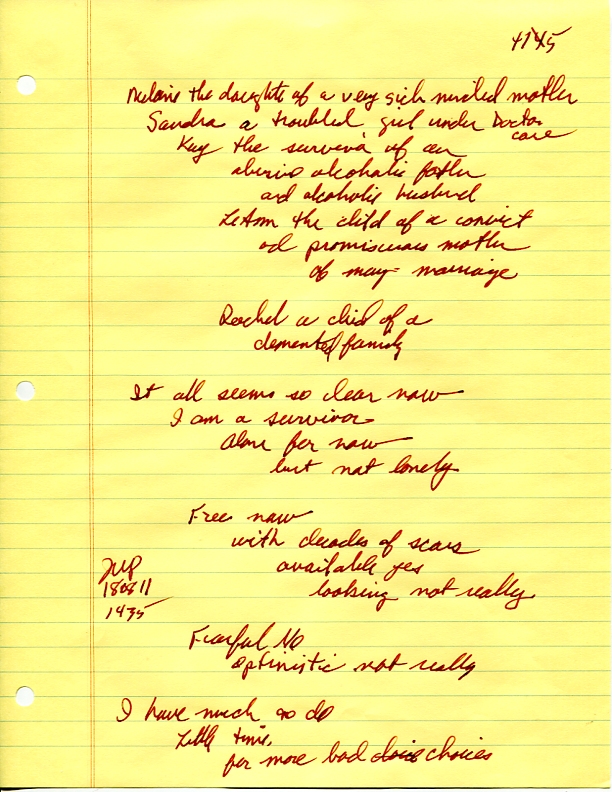 4145
Melanie the daughter of a very sick minded mother
Sandra a troubled girl under Doctor
care
Kay the survivor of an
abusive alcoholic father
and alcoholic husband
the child of a convict
and promiscuous mother
of many marriage
Rachel a child of a
demented family
It all seems so clear now
I am a survivor
alone for now
but not lonely
Free now
with decades of scars
available yes
looking not really
180811
1435
Fearful No
optimistic not really
I have much to do
Little time,
for more bad choices